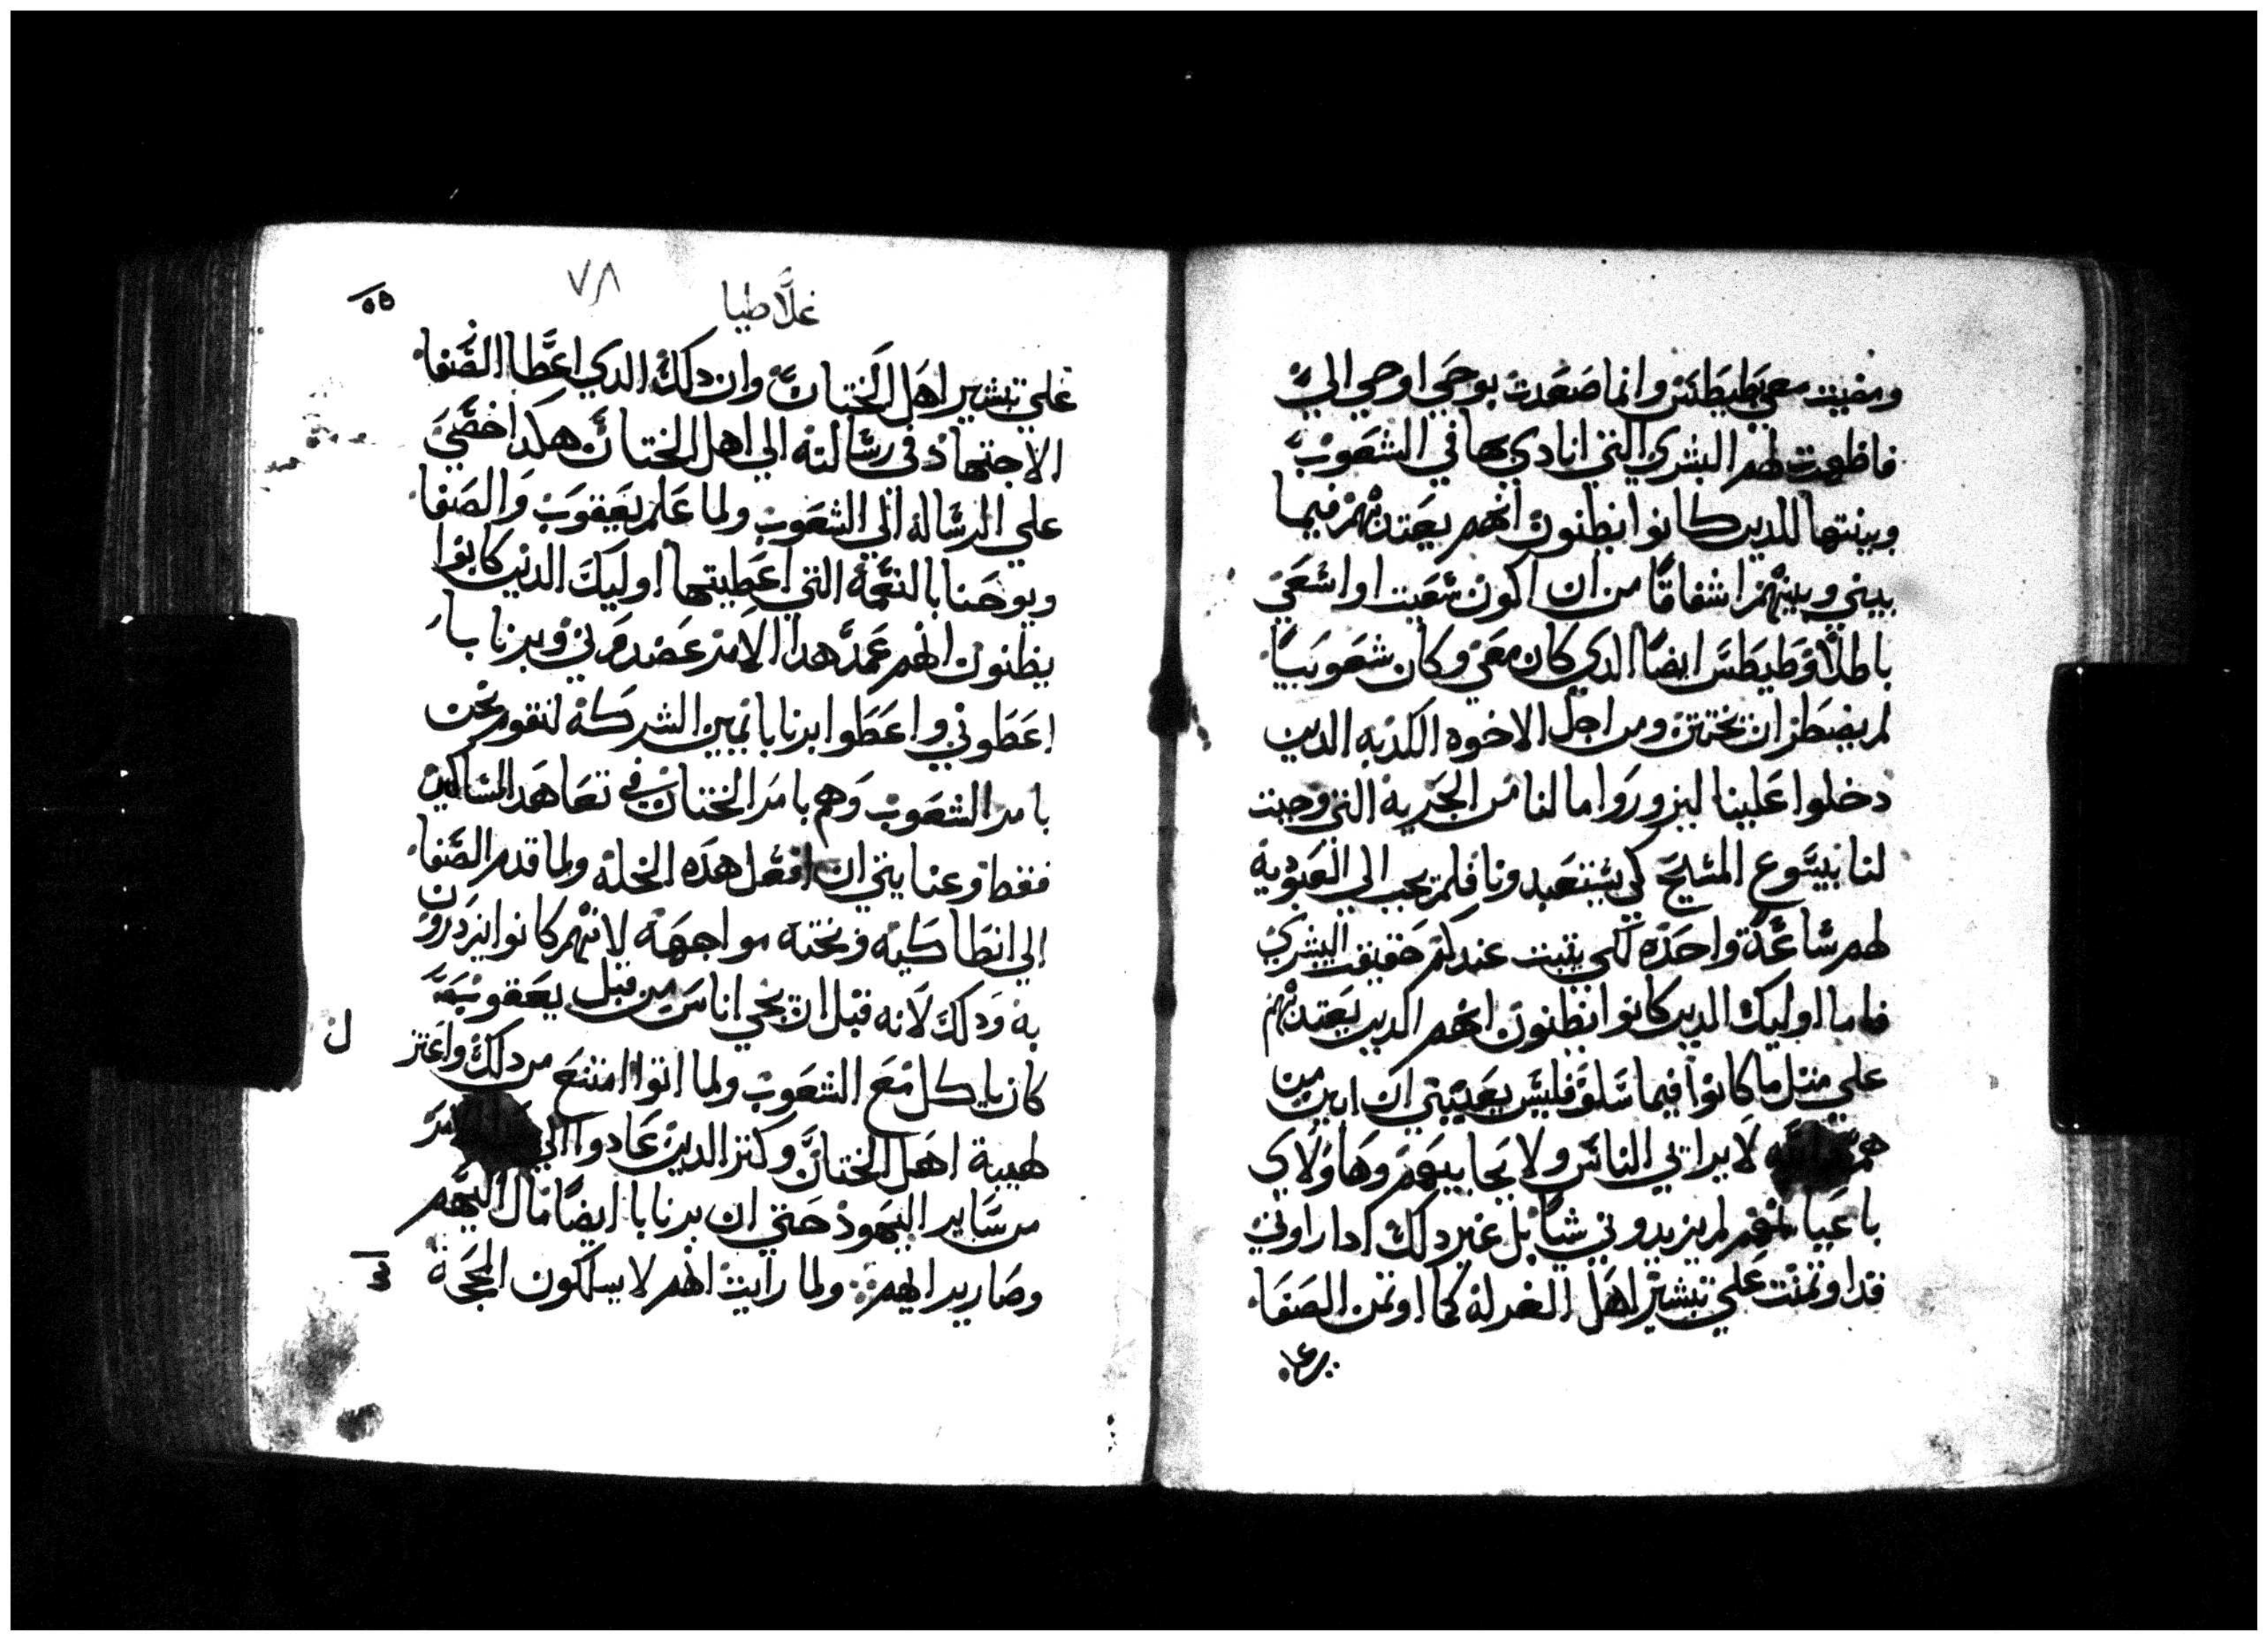 ومضيت معي بطيطس وانما صعدت بوحي اوحي الي
فاظهرت لهم البشري التي انادي بها في الشعوب
وبينتها للدين كانوا يظنون انهم يعتد بهم فيما
بيني وبينهم اشفاقا من ان اكون سعيت او اسعي
باطلا وطيطس ايضا الدي كان معي وكان شعوبيا
لم يضطر ان يختتن ومن اجل الاخوه الكدبه الدين
دخلوا علينا ليزوروا ما لنا من الحريه التي وجبت
لنا بيسوع المسيح كي يستعبدونا فلم نجب الي العبودية
لهم ساعة واحده لكي يتبت عندكم حقيقة البشري
فاما اوليك الدين كانوا يظنون انهم الدين يعتد بهم
علي متل ما كانوا فيما سلف فليس يعنيني ان ابين من
هم لا يرايي الناس ولا يحابيهم وهاولاي
باعيانهم لم يزيدوني شيا بل غير دلك ادا راوني
قد اوتمنت علي تبشير اهل الغرلة كما اوتمن الصفا
٥٥
٧٨
غلاطيا
علي تبشير اهل الختان وان دلك الدي اعطا الصفا
الاجتهاد في رسالته الي اهل الختان هكدا خصني
علي الرسالة الي الشعوب ولما علم يعقوب والصفا
ويوحنا بالنعمة التي اعطيتها اوليك الدين كانوا
يظنون انهم عمد هدا الامر وبرنابا
اعطوني واعطوا برنابا يمين الشركة لنقوم نحن
بامر الشعوب وهم بامر الختان في تعاهد المساكين
فقط وعنايتي ان افعل هده الخلة ولما قدم الصفا
الي انطاكيه وبخته مواجهة لانهم كانوا يزدرون
به ودلك لانه قبل ان يجي اناس من قبل يعقوب
كان ياكل مع الشعوب ولما اتوا امتنع من دلك واعتز
ل
طهيبة اهل الختان وكتر الدين عادوا الي
من ساير اليهود حتي ان برنابا ايضا مال اليهم
وصار يرايهم ولما رايت انهم لا يسلكون المحجة